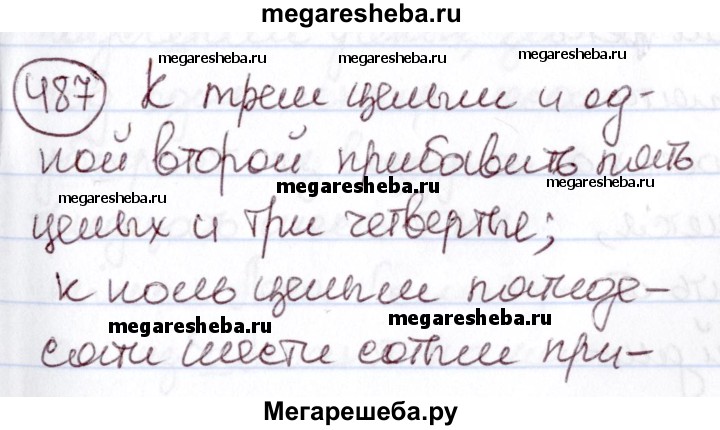 megaresheba.ru
megaresheba.ru megaresheba.ru
487 К трем целым и од-
ной второй прибавить пять
megaresheba.ru megaresheba.ru
megaresheba.ru
целых и три четвертые;
к ноль целым пятиде-
megaresheba.ru megaresheba.ru
сяти шести сотым при-
Мегарешеба.ру